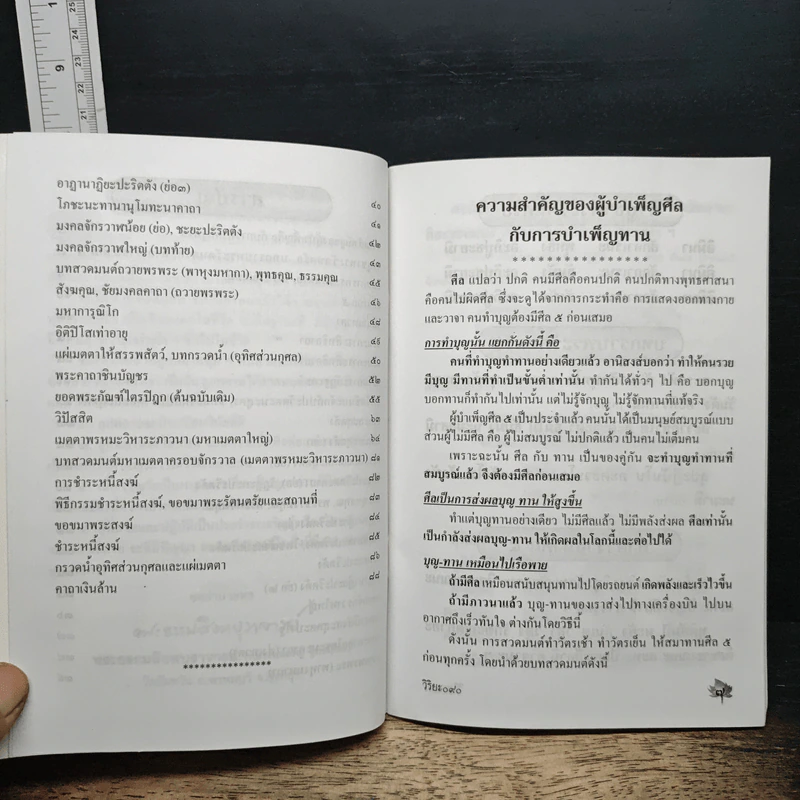 9
25
24
23
22
21
อาฏานาฏิยะปะริตตัง (ย่อ๓) ๔๐
โภชะนะทานานุโมทะนาคาถา ๔๑
มงคลจักรวาฬน้อย (ย่อ), ชะยะปะริตตัง ๔๒
มงคลจักรวาฬใหญ่ (บทท้าย) ๔๓
บทสวดมนต์ถวายพรพระ (พาหุงมหากา), พุทธคุณ, ธรรมคุณ ๔๕
สังฆคุณ, ชัยมงคลคาถา (ถวายพรพระ) ๔๖
มหาการุณิโก ๔๘
อิติปิโสเท่าอายุ ๔๙
แผ่เมตตาให้สรรพสัตว์, บทกรวดน้ำ (อุทิศส่วนกุศล) ๕๐
พระคาถาชินบัญชร ๕๒
ยอดพระกัณฑ์ไตรปิฎก (ต้นฉบับเดิม) ๕๕
วิปัสสิต ๖๓
เมตตาพรหมะวิหาระภาวนา (มหาเมตตาใหญ่) ๖๔
บทสวดมนต์มหาเมตตาครอบจักรวาล (เมตตาพรหมะวิหาระภาวนา) ๘๑
การชำระหนี้สงฆ์ ๘๒
พิธีกรรมชำระหนี้สงฆ์, ขอขมาพระรัตนตรัยและสถานที่ ๘๓
ขอขมาพระสงฆ์ ๘๔
ชำระหนี้สงฆ์ ๘๕
กรวดน้ำอุทิศส่วนกุศลและแผ่เมตตา ๘๖
คาถาเงินล้าน ๘๘
*****************
ความสำคัญของผู้บำเพ็ญศีล
กับการบำเพ็ญทาน
****************
ศีล แปลว่า ปกติ คนมีศีลคือคนปกติ คนปกติทางพุทธศาสนา
คือคนไม่ผิดศีล ซึ่งจะดูได้จากการกระทำคือ การแสดงออกทางกาย
และวาจา คนทำบุญต้องมีศีล ๕ ก่อนเสมอ
การทำบุญนั้น แยกกันดังนี้ คือ
คนที่ทำบุญทำทานอย่างเดียวแล้ว อานิสงส์บอกว่า ทำให้คนรวย
มีบุญ มีทานที่ทำเป็นขั้นต่ำเท่านั้น ทำกันได้ทั่วๆ ไป คือ บอกบุญ
บอกทานก็ทำกันไปเท่านั้น แต่ไม่รู้จักบุญ ไม่รู้จักทานที่แท้จริง
ผู้บำเพ็ญศีล ๕ เป็นประจำแล้ว คนนั้นได้เป็นมนุษย์สมบูรณ์แบบ
ส่วนผู้ไม่มีศีล คือ ผู้ไม่สมบูรณ์ ไม่ปกติแล้ว เป็นคนไม่เต็มคน
เพราะฉะนั้น ศีล กับ ทาน เป็นของคู่กัน จะทำบุญทำทานที่
สมบูรณ์แล้ว จึงต้องมีศีลก่อนเสมอ
ศีลเป็นการส่งผลบุญ ทาน ให้สูงขึ้น
ทำแต่บุญทานอย่างเดียว ไม่มีศีลแล้ว ไม่มีพลังส่งผล ศีลเท่านั้น
เป็นกำลังส่งผลบุญ-ทาน ให้เกิดผลในโลกนี้และต่อไปได้
บุญ-ทาน เหมือนไปเรือพาย
ถ้ามีศีล เหมือนสนับสนุนทานไปโดยรถยนต์ เกิดพลังและเร็วไวขึ้น
ถ้ามีภาวนาแล้ว บุญ-ทานของเราส่งไปทางเครื่องบิน ไปบน
อากาศถึงเร็วทันใจ ต่างกันโดยวิธีนี้
ดังนั้น การสวดมนต์ทำวัตรเช้า ทำวัตรเย็น ให้สมาทานศีล ๕
ก่อนทุกครั้ง โดยนำด้วยบทสวดมนต์ดังนี้
วิริยะ๐๙๐
๗